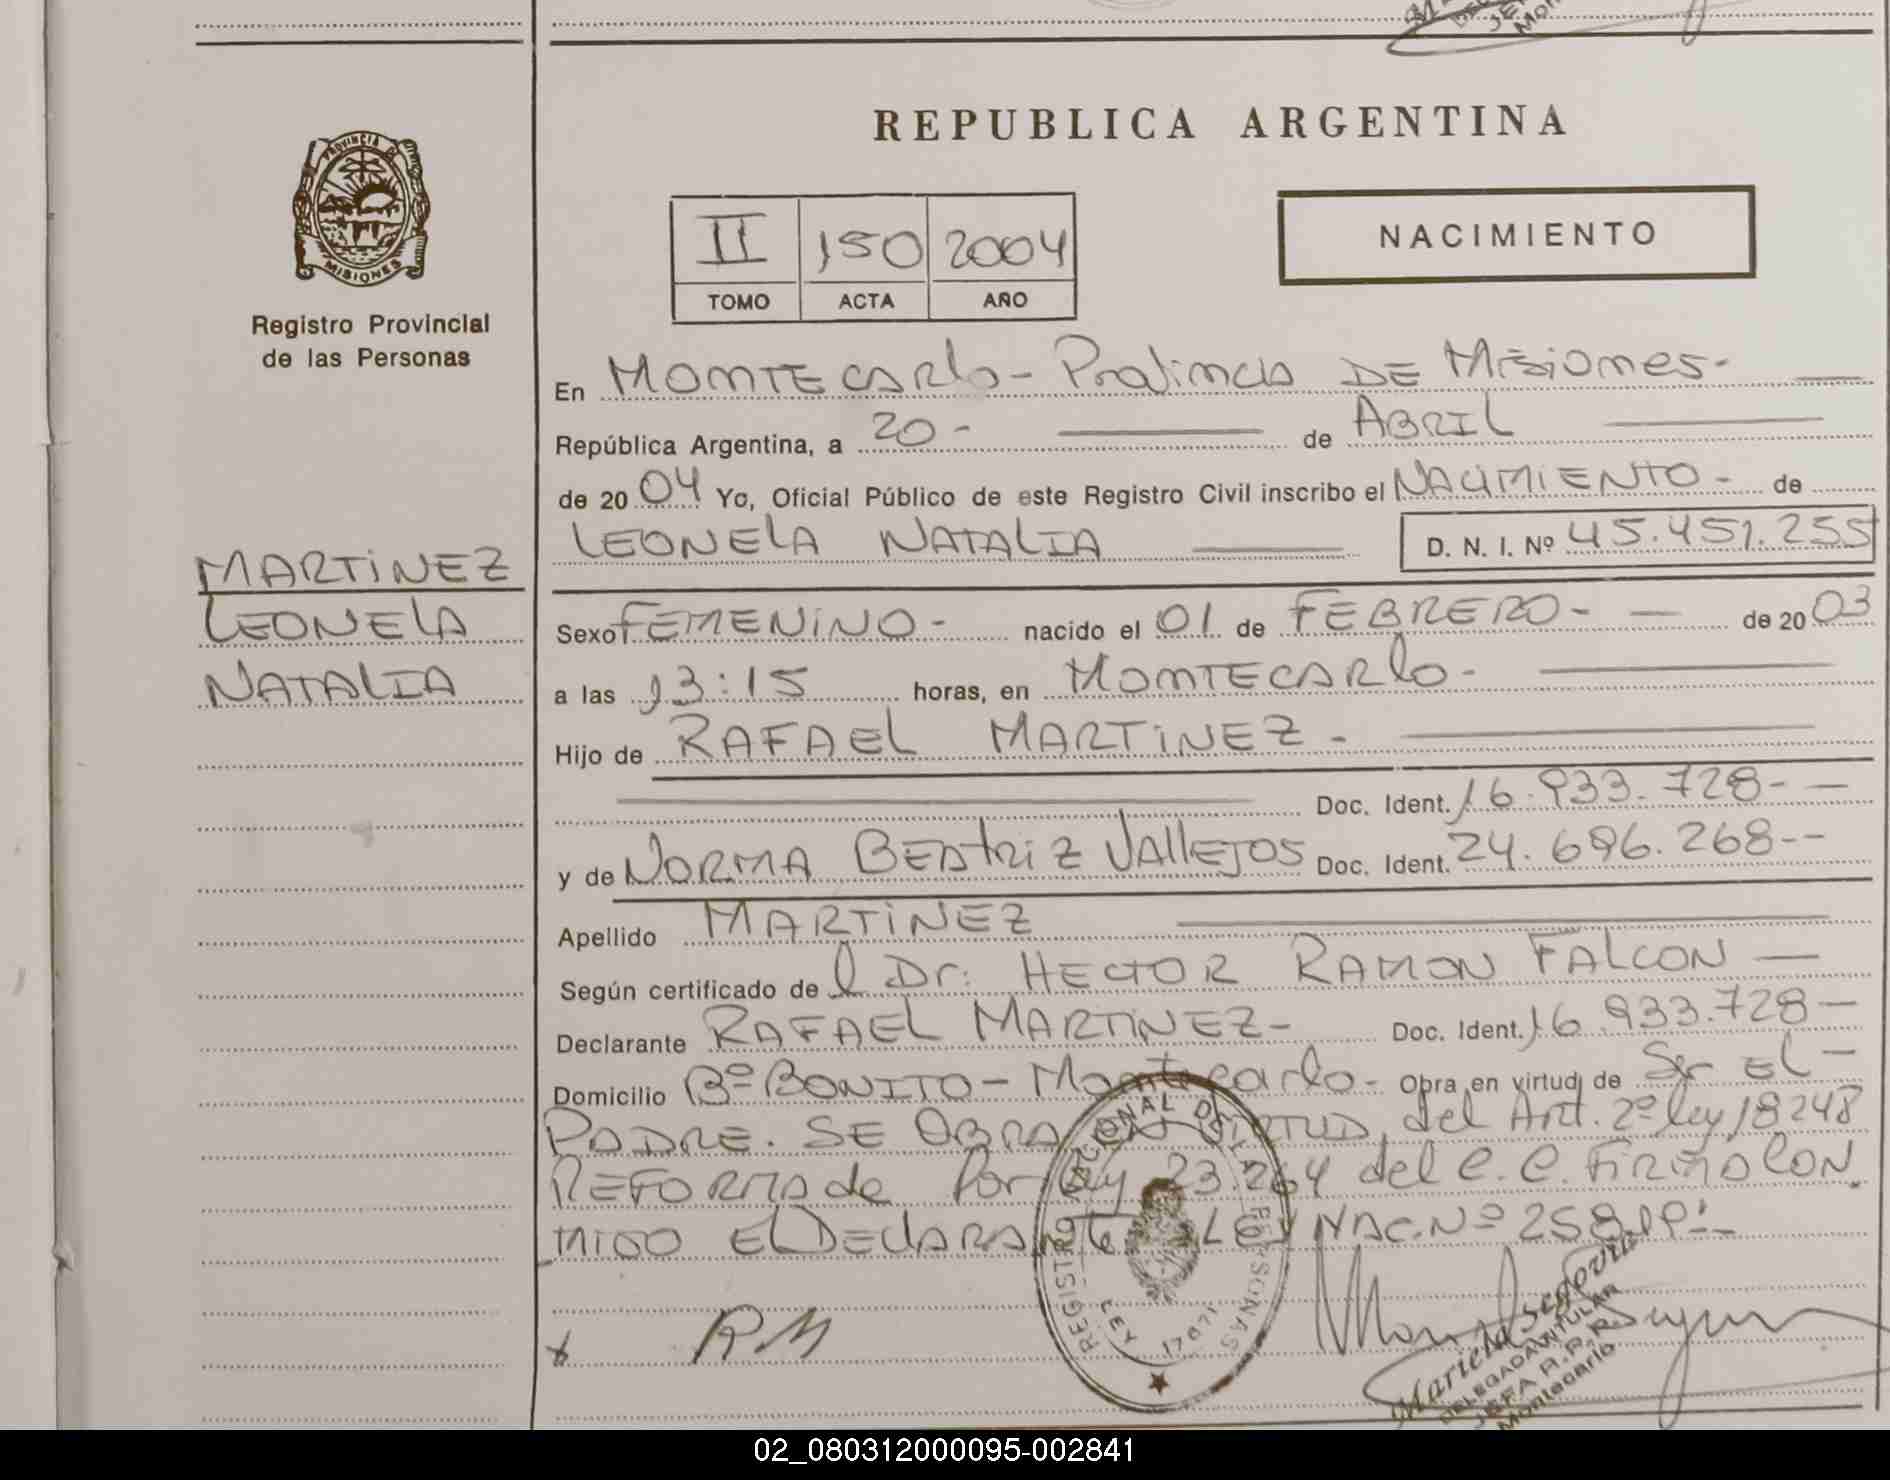 REPUBLICA ARGENTINA
PROVINCIA DE
MISIONES
Registro Provincial
de las Personas
II 150 2004
TOMO ACTA AÑO
NACIMIENTO
En MONTECARlo - Provincia DE Misiones -
República Argentina, a 20 - de ABRIL
de 20 04 Yo, Oficial Público de este Registro Civil inscribo el NACIMIENTO - de
LEONELA NATALIA D. N. I. Nº 45.451.255
MARTINEZ
LEONELA
NATALIA
Sexo FEMENINO - nacido el 01 de FEBRERO - - de 20 03
a las 13:15 horas, en MONTECARlo -
Hijo de RAFAEL MARTINEZ -
Doc. Ident. 16.933.728 - -
y de NORMA BEAtRiZ VAllEJOS Doc. Ident. 24.696.268 - -
Apellido MARTINEZ
Según certificado de l Dr: HECTOR RAMON FALCON -
Declarante RAFAEL MARTINEZ - Doc. Ident. 16.933.728 -
Domicilio Bº BONITO - Montecarlo - Obra en virtud de Ser EL -
PADRE. SE OBRA EN VIRTUD del Art. 2º ley 18248
REFORMADA Por ley 23.264 del C.C. FIRMA CON
MIGO EL DECLARANTE LEY NAC. Nº
RM
REGISTRO NACIONAL DE LAS PERSONAS
LEY 17671
Mariela Segovia
DELEGADA TITULAR
JEFA R.P.P.
Montecarlo
02_080312000095-002841